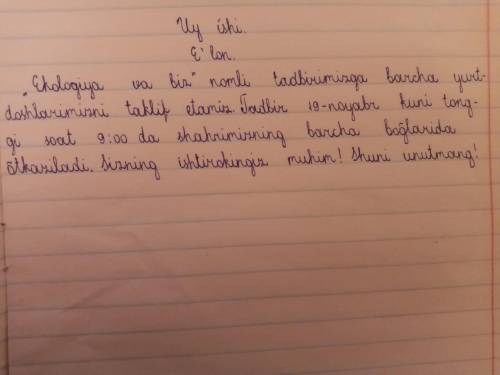 Uy ishi.
E'lon.
„Ekologiya va biz" nomli tadbirimizga barcha yurt-
doshlarimizni taklif etamiz. Tadbir 19-noyabr kuni tong-
gi soat 9:00 da shahrimizning barcha bog̃larida
õtkaziladi. Sizning ishtirokingiz muhim! Shuni unutmang!